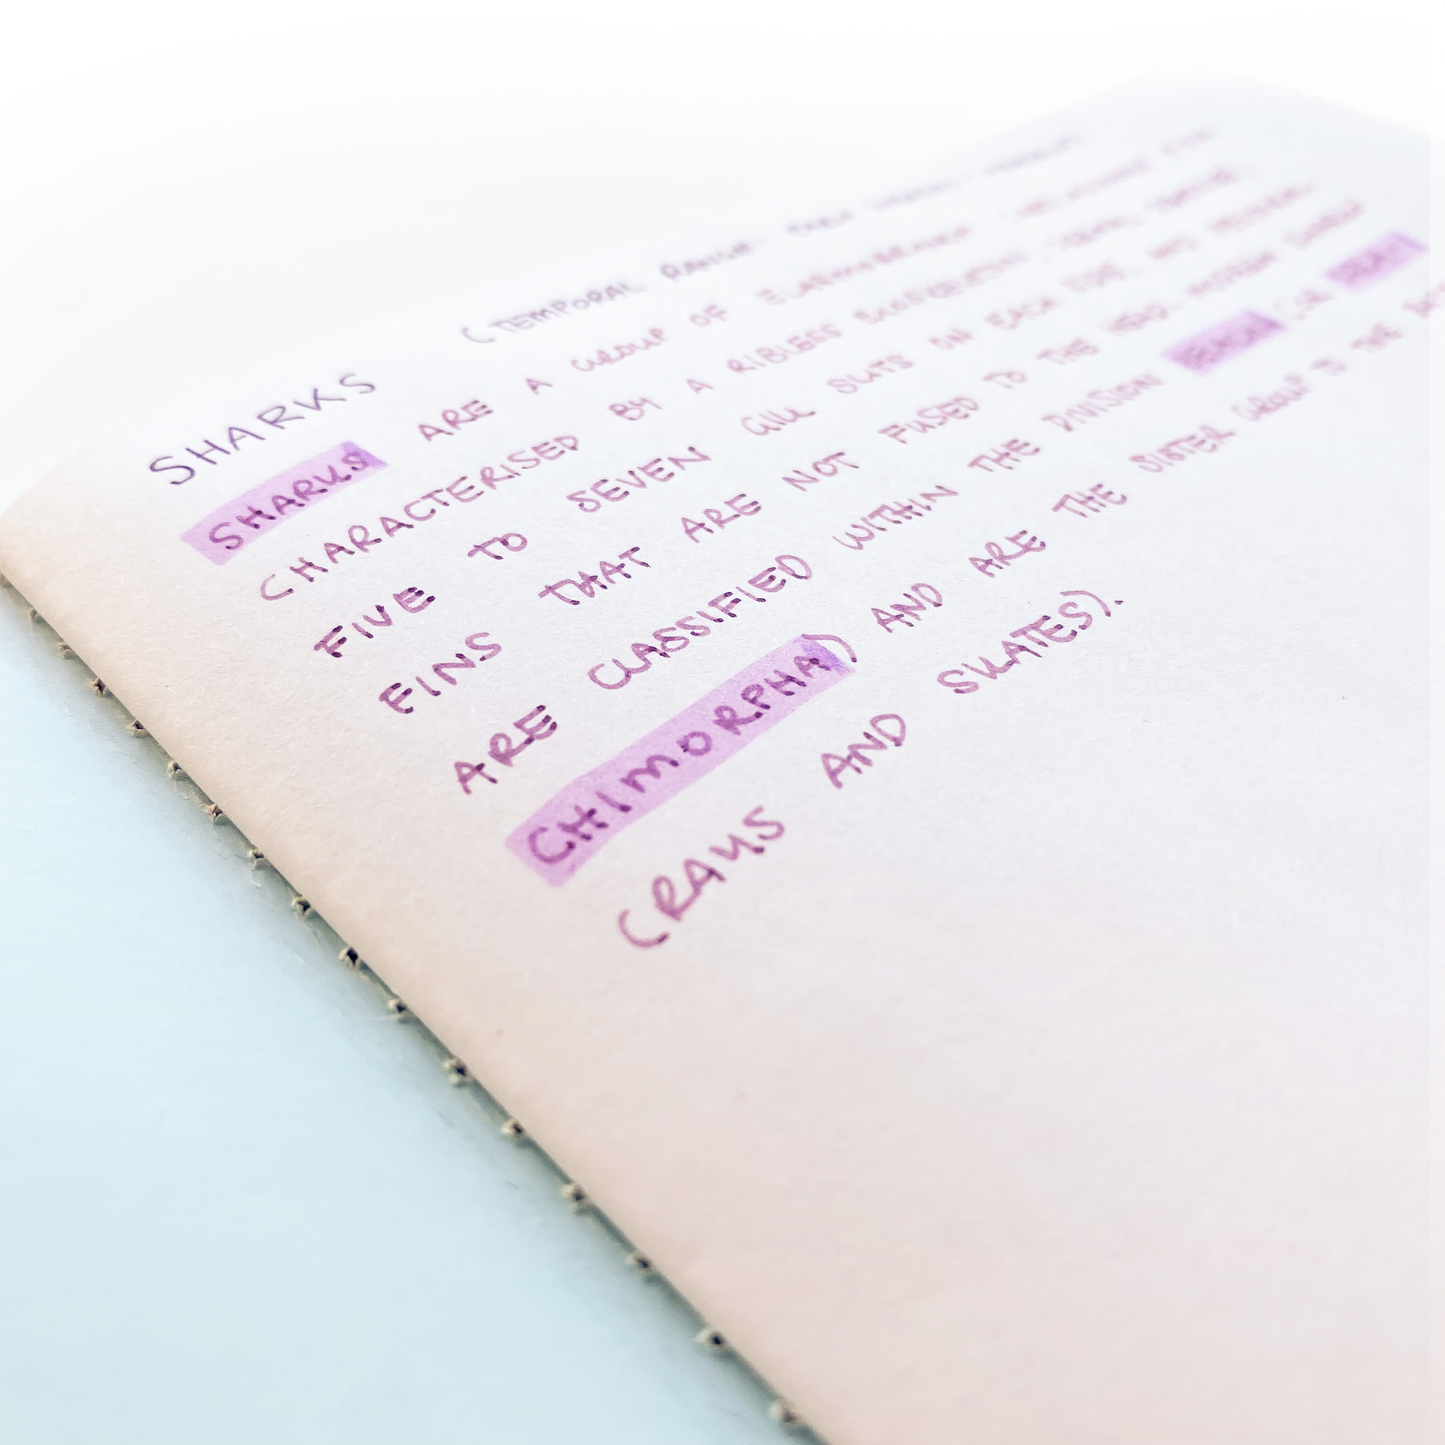 SHARKS (TEMPORAL RANGE:
SHARKS ARE A GROUP OF ELASMOBRANCH
CHARACTERISED BY A RIBLESS ENDOSKELETON,
FIVE TO SEVEN GILL SLITS ON EACH SIDE, AND PECTORAL
FINS THAT ARE NOT FUSED TO THE HEAD. MODERN SHARKS
ARE CLASSIFIED WITHIN THE DIVISION (OR
CHIMORPHA) AND ARE THE SISTER GROUP TO THE
(RAYS AND SKATES).